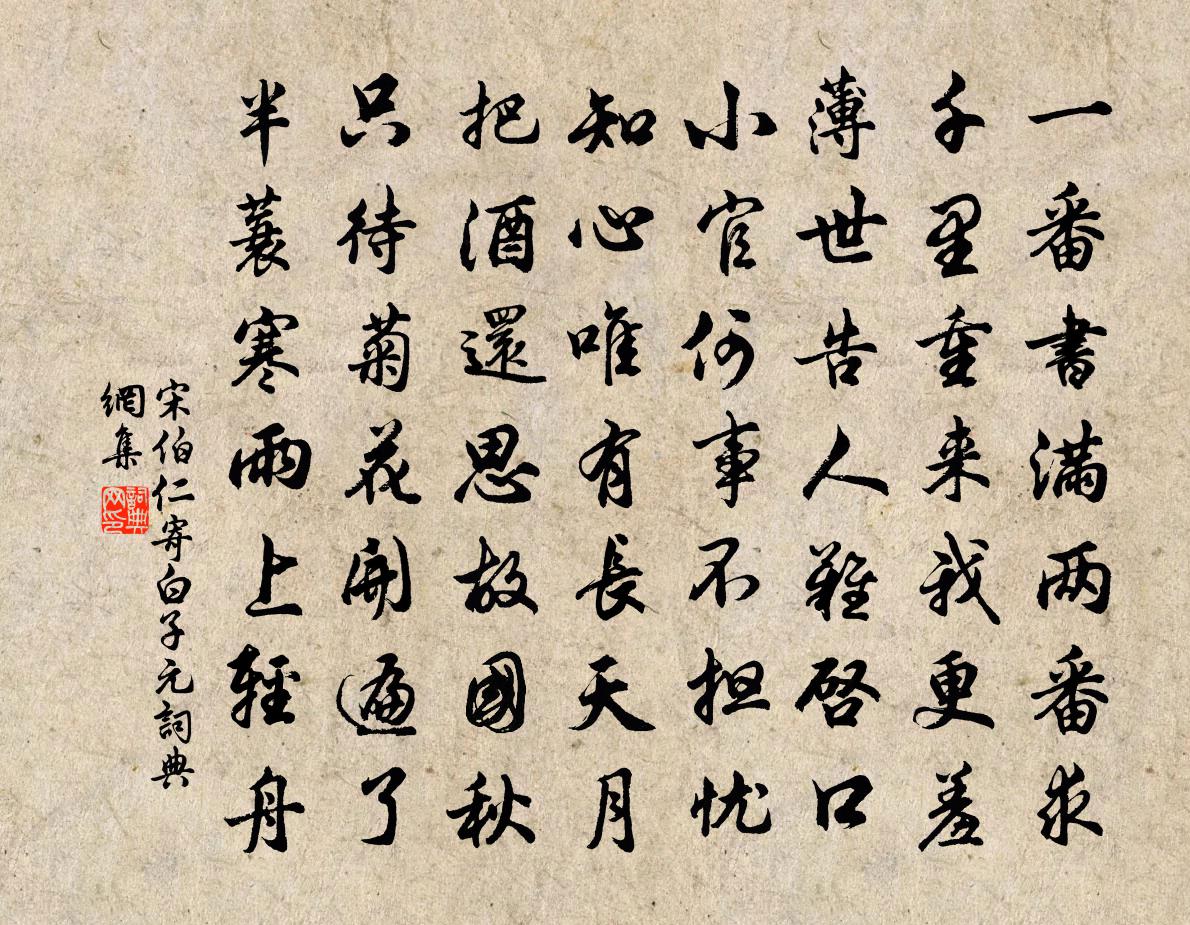 一番書滿兩番求
千里重来我更羞
薄世告人難啓口
小官何事不担忧
知心唯有長天月
把酒還思故國秋
只待菊花開遍了
半蓑寒雨上輕舟
宋伯仁寄白子元詞典
網集
詞典
网印